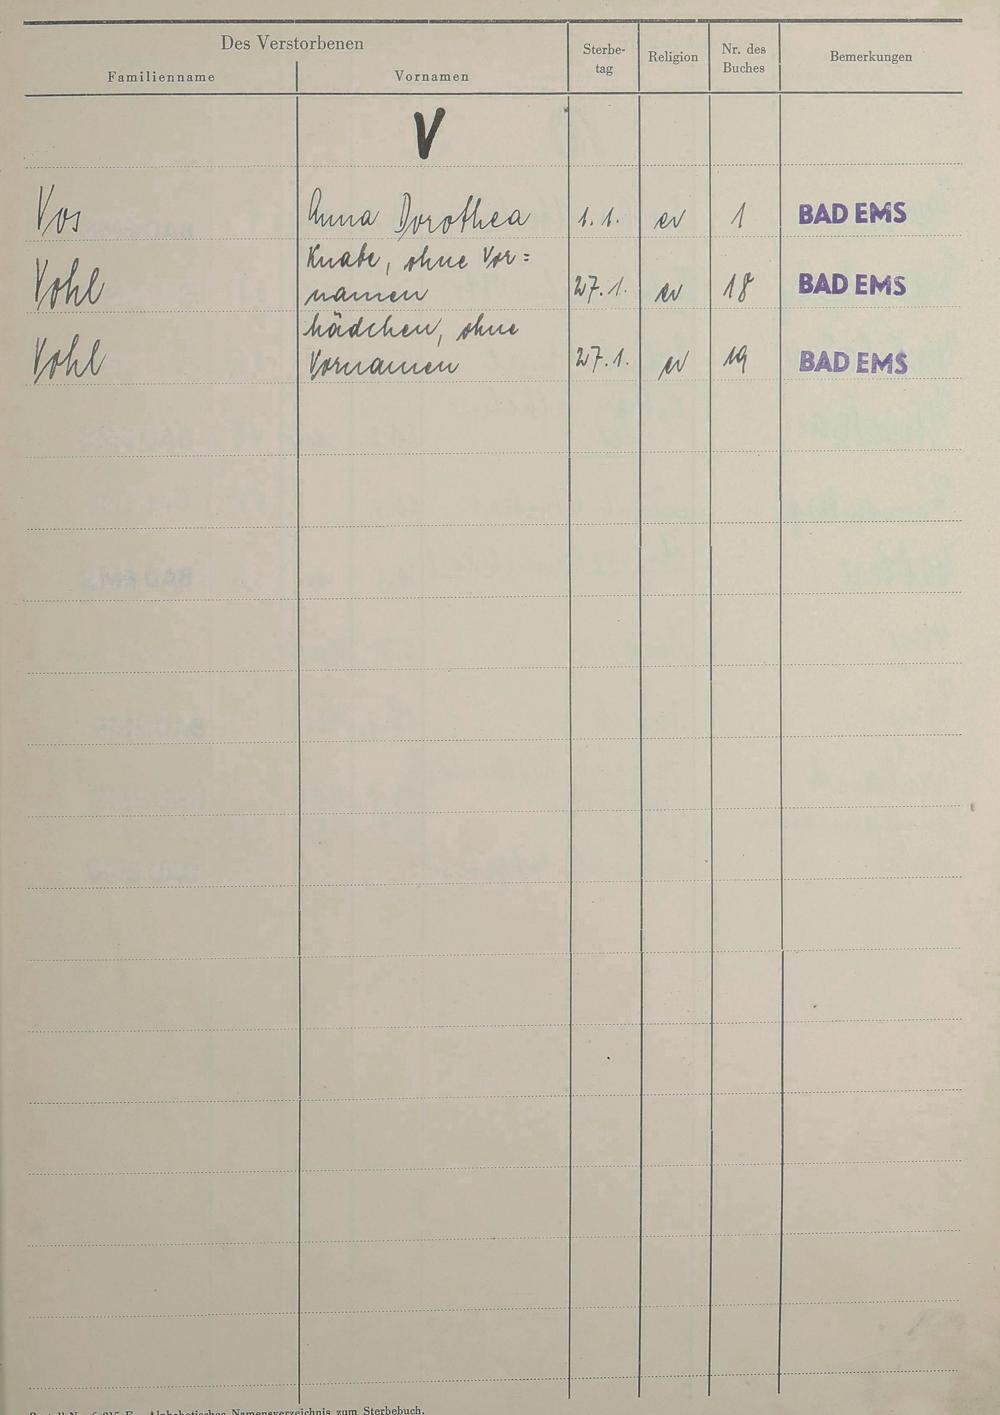 Des Verstorbenen
Familienname Vornamen Sterbe-
tag Religion Nr. des
Buches Bemerkungen
V
Vos Anna Dorothea 1.1. ev 1 BAD EMS
Knabe, ohne Vor=
Vohl namen 27.1. ev 18 BAD EMS
Mädchen, ohne
Vohl Vornamen 27.1. ev 19 BAD EMS
Alphabetisches Namensverzeichnis zum Sterbebuch.